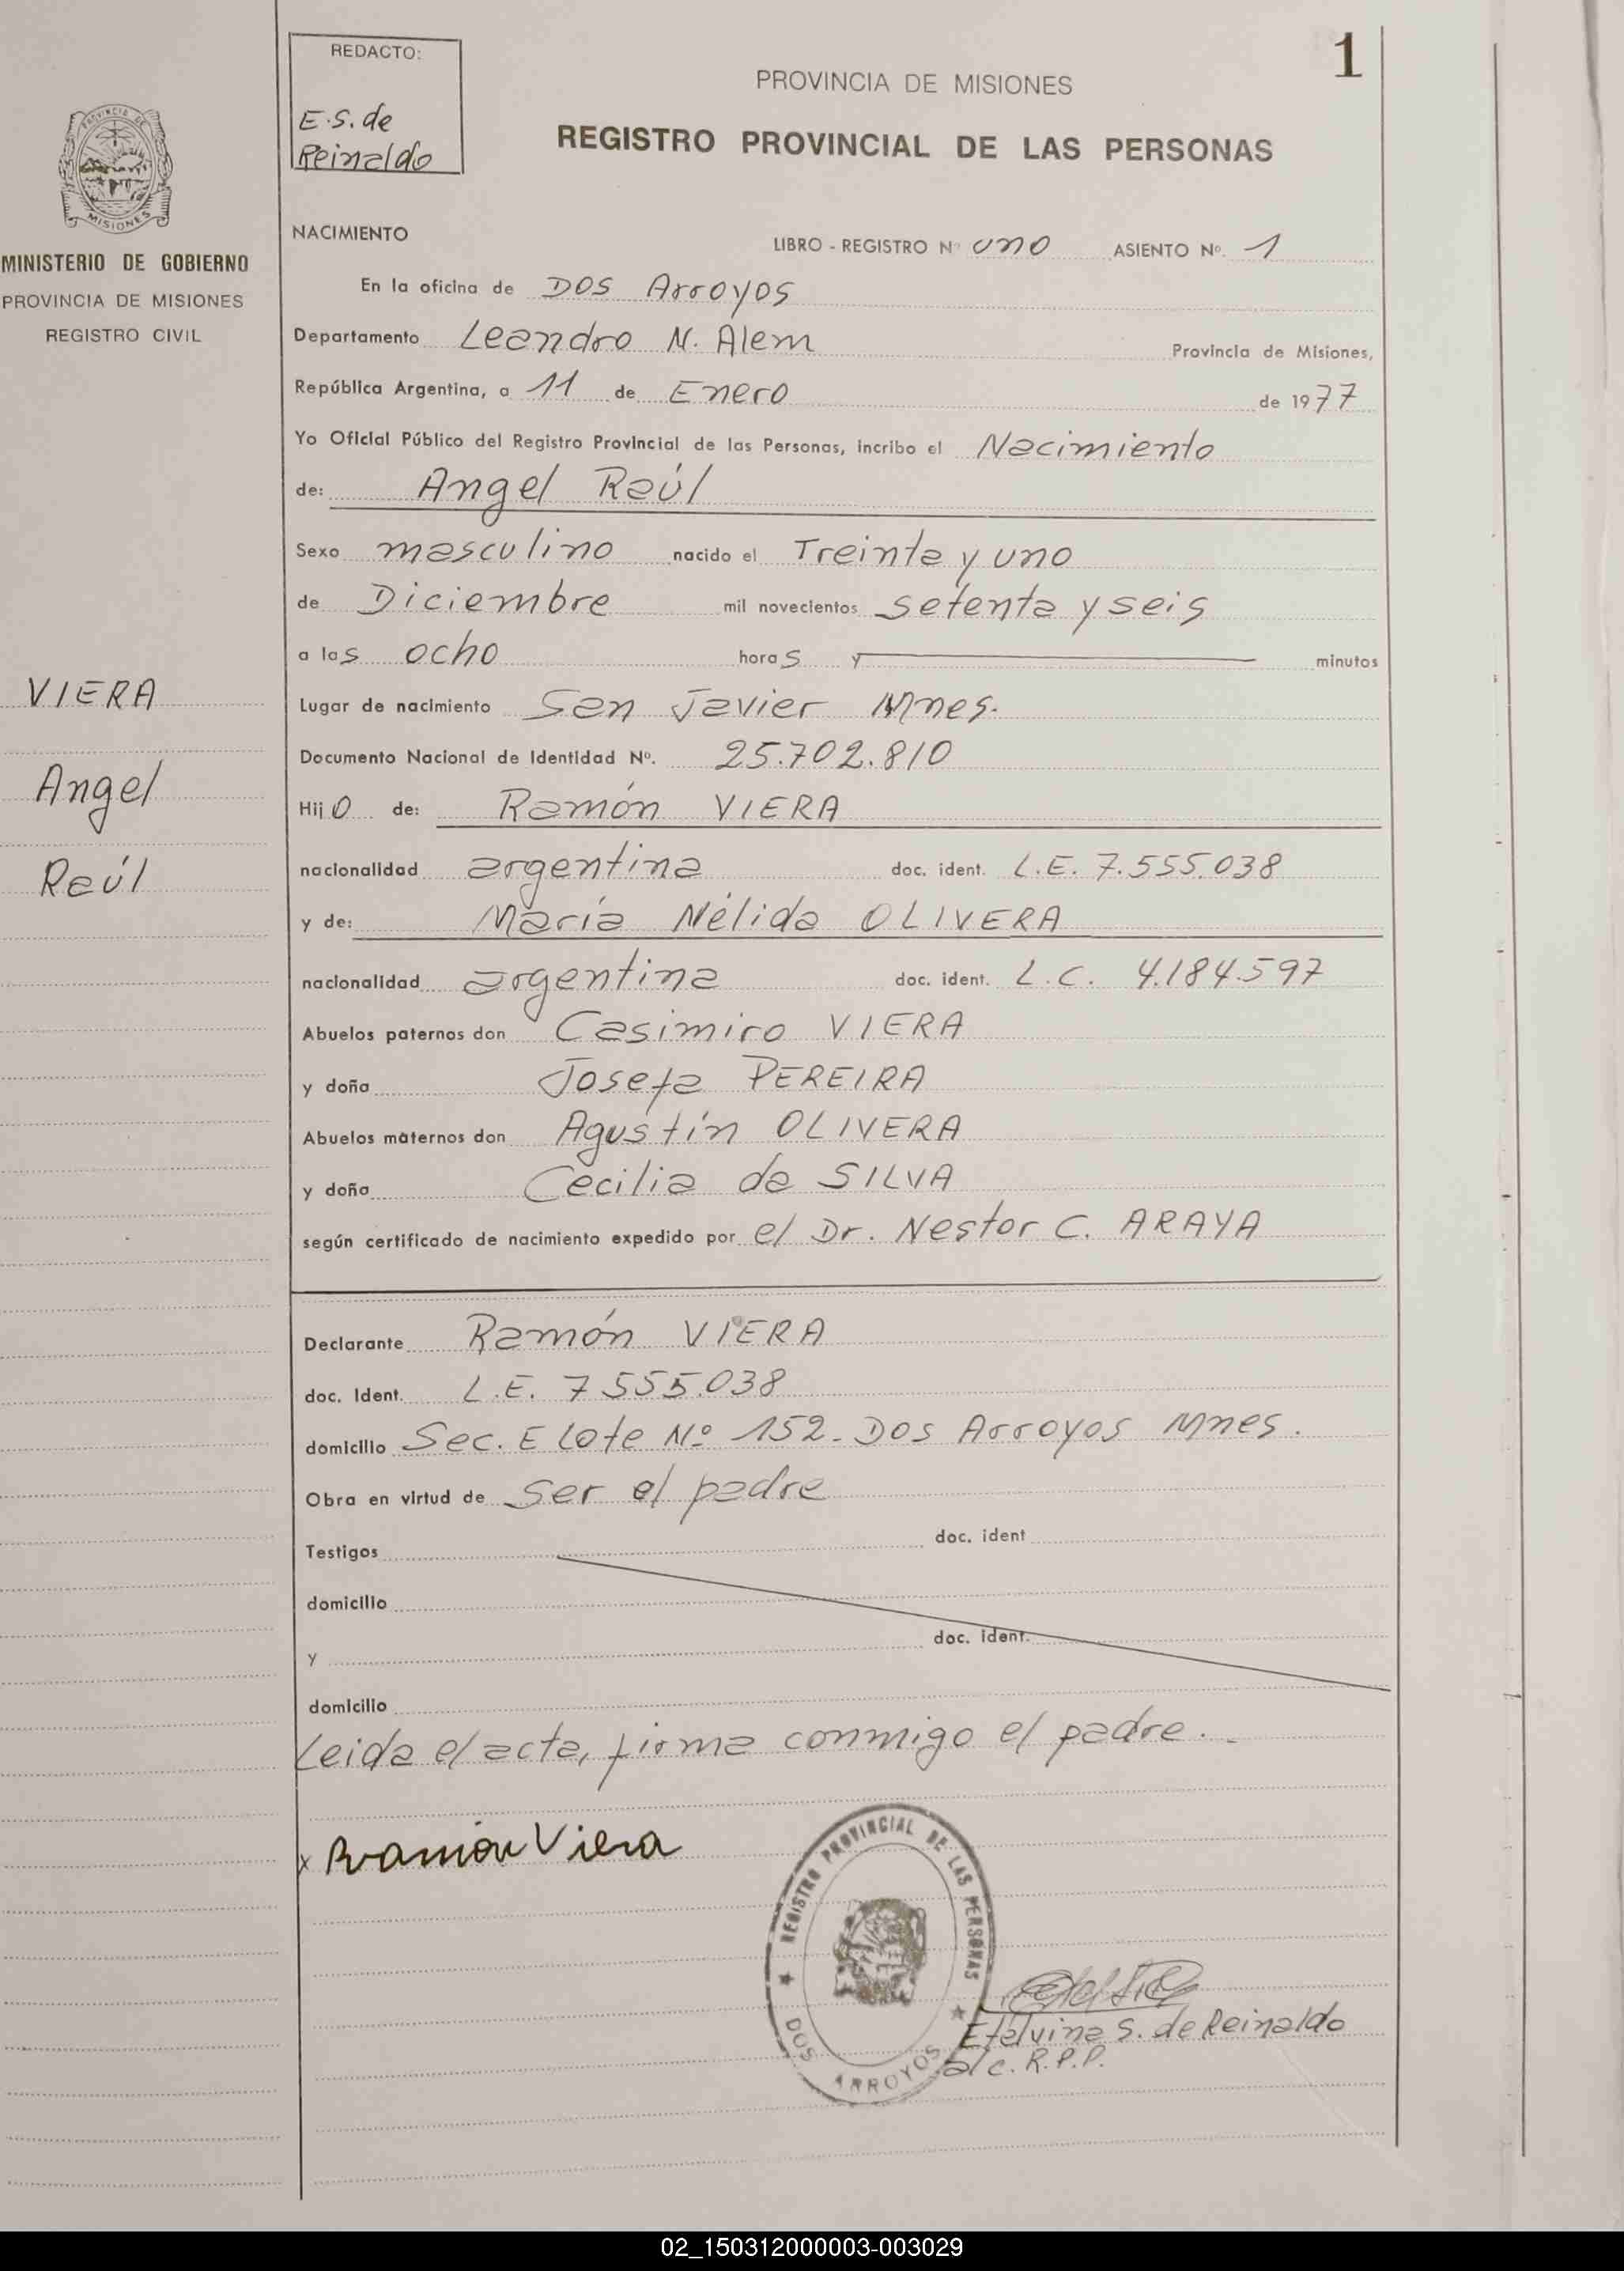 REDACTO:
E.S. de
Reinaldo
1
PROVINCIA DE MISIONES
REGISTRO PROVINCIAL DE LAS PERSONAS
PROVINCIA DE
MISIONES
MINISTERIO DE GOBIERNO
PROVINCIA DE MISIONES
REGISTRO CIVIL
VIERA
Angel
Raúl
NACIMIENTO
LIBRO - REGISTRO Nº uno ASIENTO Nº. 1
En la oficina de Dos Arroyos
Departamento Leandro N. Alem Provincia de Misiones,
República Argentina, a 11 de Enero de 1977
Yo Oficial Público del Registro Provincial de las Personas, incribo el Nacimiento
de: Angel Raúl
Sexo masculino nacido el Treinta y uno
de Diciembre mil novecientos setenta y seis
a las ocho horas y minutos
Lugar de nacimiento San Javier Mnes.
Documento Nacional de Identidad Nº. 25.702.810
Hijo de: Ramón VIERA
nacionalidad argentina doc. ident. L.E. 7.555.038
y de: María Nélida OLIVERA
nacionalidad argentina doc. ident. L.C. 4.184.597
Abuelos paternos don Casimiro VIERA
y doña Josefa PEREIRA
Abuelos maternos don Agustín OLIVERA
y doña Cecilia da SILVA
según certificado de nacimiento expedido por el Dr. Nestor C. ARAYA
Declarante Ramón VIERA
doc. Ident. L.E. 7.555.038
domicilio Sec. E lote Nº 152. Dos Arroyos Mnes.
Obra en virtud de ser el padre
Testigos doc. ident
domicilio
y doc. ident.
domicilio
Leida el acta, firma conmigo el padre.-
x Ramón Viera
REGISTRO PROVINCIAL DE LAS PERSONAS
DOS ARROYOS
Etelvina S. de Reinaldo
a/c. R.P.P.
02_150312000003-003029